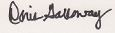 Doris Galloway